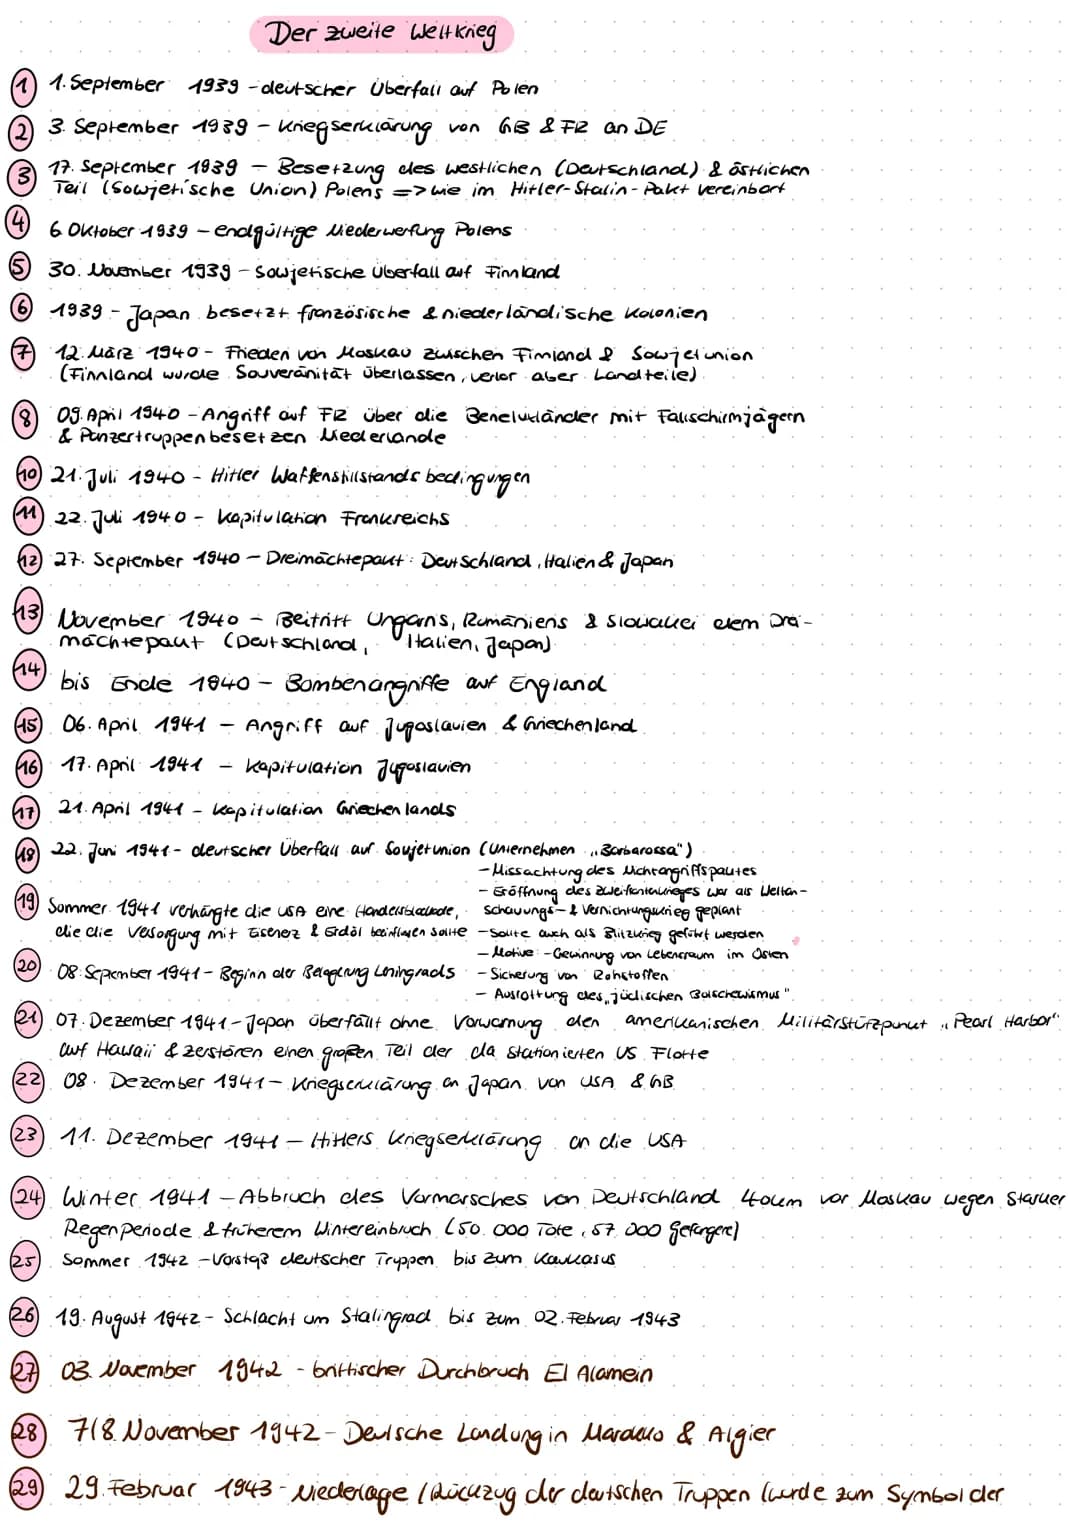 Der zweite Weltkrieg
1 1. September 1939 - deutscher Überfall auf Polen
2 3. September 1939 - Kriegserklärung von GB & FR an DE
3 17. September 1939 - Besetzung des westlichen (Deutschland) & östlichen
Teil (Sowjetische Union) Polens => wie im Hitler-Stalin-Pakt vereinbart
4 6. Oktober 1939 - endgültige Niederwerfung Polens
5 30. November 1939 - Sowjetische Überfall auf Finnland
6 1939 - Japan besetzt französische & niederländische Kolonien
7 12. März 1940 - Frieden von Moskau zwischen Finnland & Sowjetunion
(Finnland wurde Souveränität überlassen, verlor aber Landteile)
8 09. April 1940 - Angriff auf FR über die Beneluxländer mit Fallschirmjägern
& Panzertruppen besetzen Niederlande
10 21. Juli 1940 - Hitler Waffenstillstandsbedingungen
11 22. Juli 1940 - Kapitulation Frankreichs
12 27. September 1940 - Dreimächtepakt: Deutschland, Italien & Japan
13 November 1940 - Beitritt Ungarns, Rumäniens & Slowakei dem Drei-
mächtepakt (Deutschland, Italien, Japan)
14 bis Ende 1940 - Bombenangriffe auf England
15 06. April 1941 - Angriff auf Jugoslavien & Griechenland
16 17. April 1941 - Kapitulation Jugoslavien
17 21. April 1941 - Kapitulation Griechenlands
18 22. Juni 1941 - deutscher Überfall auf Sowjetunion (Unternehmen „Barbarossa")
- Missachtung des Nichtangriffspaktes
- Eröffnung des Zweifrontenkrieges war als Weltan-
schauungs- & Vernichtungskrieg geplant
- Sollte auch als Blitzkrieg geführt werden
- Motive: - Gewinnung von Lebensraum im Osten
- Sicherung von Rohstoffen
- Ausrottung des „jüdischen Bolschewismus"
19 Sommer 1941 verhängte die USA eine Handelsblockade,
die die Versorgung mit Eisenerz & Erdöl beinflussen sollte
20 08. September 1941 - Beginn der Belagerung Leningrads
21 07. Dezember 1941 - Japan überfällt ohne Vorwarnung den amerikanischen Militärstützpunkt „Pearl Harbor"
auf Hawaii & zerstören einen großen Teil der da stationierten US Flotte
22 08. Dezember 1941 - Kriegserklärung an Japan von USA & GB
23 11. Dezember 1941 - Hitlers Kriegserklärung an die USA
24 Winter 1941 - Abbruch des Vormarsches von Deutschland 40km vor Moskau wegen starker
Regenperiode & früherem Wintereinbruch (50.000 Tote, 57.000 Gefangene)
25 Sommer 1942 - Vorstoß deutscher Truppen bis zum Kaukasus
26 19. August 1942 - Schlacht um Stalingrad bis zum 02. Februar 1943
27 03. November 1942 - brittischer Durchbruch El Alamein
28 7/8. November 1942 - Deutsche Landung in Marokko & Algier
29 29. Februar 1943 - Niederlage / Rückzug der deutschen Truppen (wurde zum Symbol der